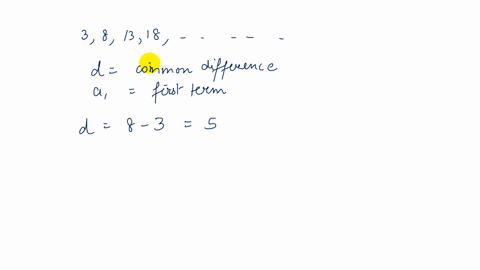 3, 8, 13, 18, - - - - -
d = common difference
a₁ = first term
d = 8 - 3 = 5